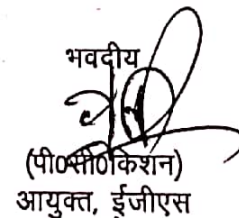 भवदीय
(पी0सी0किशन)
आयुक्त, ईजीएस